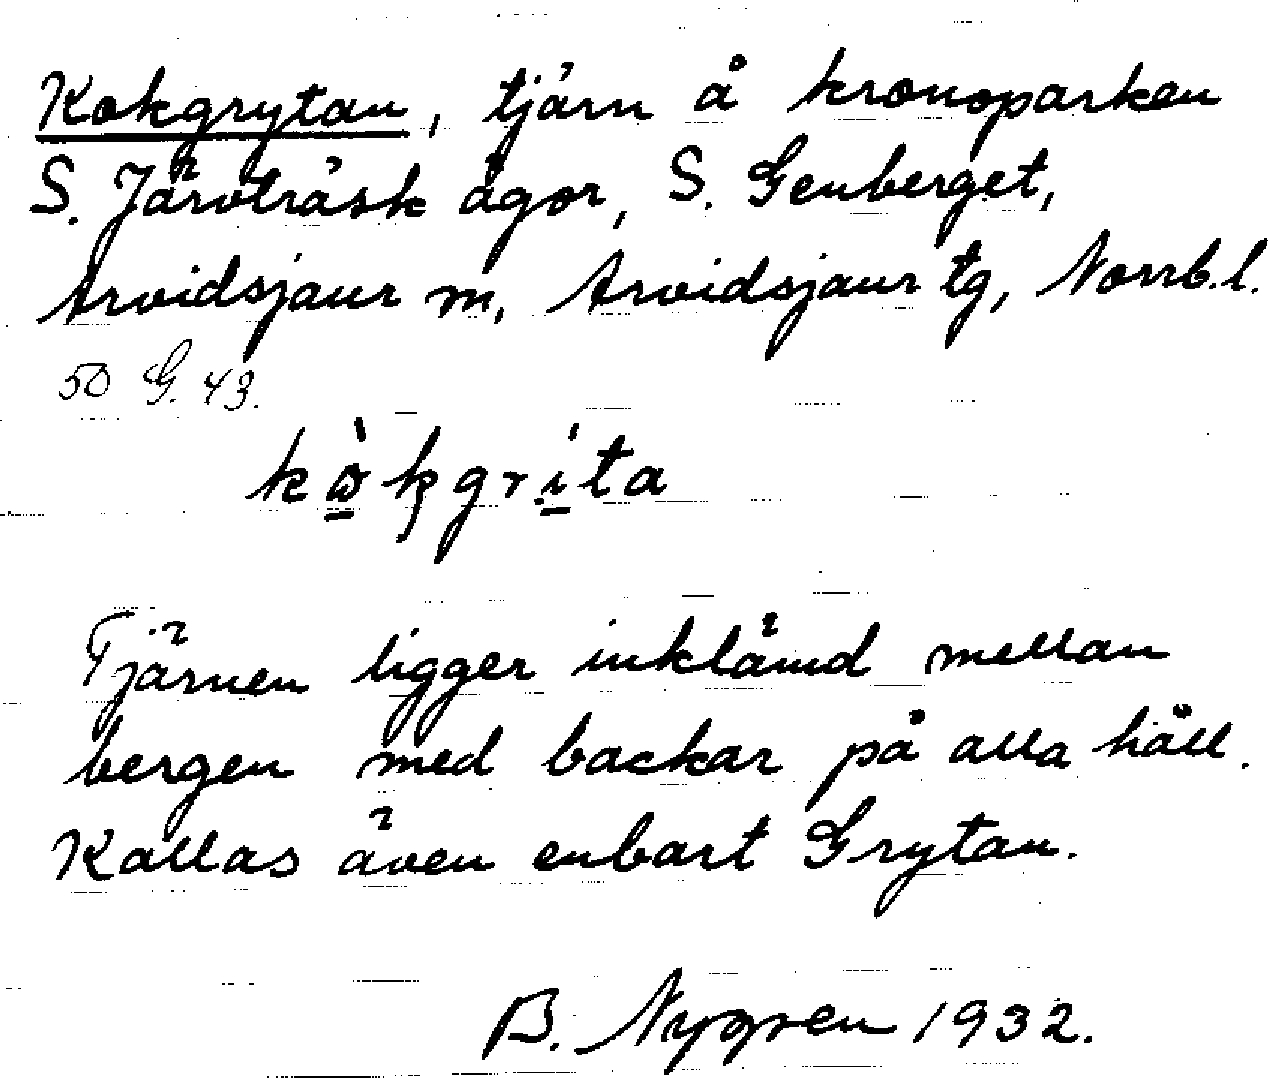 Kokgrytan, tjärn å kronoparken
S. Järvträsk ägor, S. Genberget,
Arvidsjaur m, Arvidsjaur tg, Norrb.l.
50 G. 43.
Tjärnen ligger inklämd mellan
bergen med backar på alla håll.
Kallas även enbart Grytan.
B. Nygren 1932.